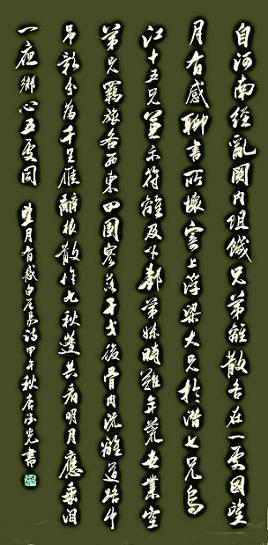 自河南经乱关内阻饥兄弟离散各在一处因望
月有感聊书所怀寄上浮梁大兄於潜七兄乌
江十五兄兼示符离及下邽弟妹时难年荒世业空
弟兄羁旅各西东田园寥落干戈后骨肉流离道路中
吊影分为千里雁辞根散作九秋蓬共看明月应垂泪
一夜乡心五处同 望月有感白居易诗甲午秋 书